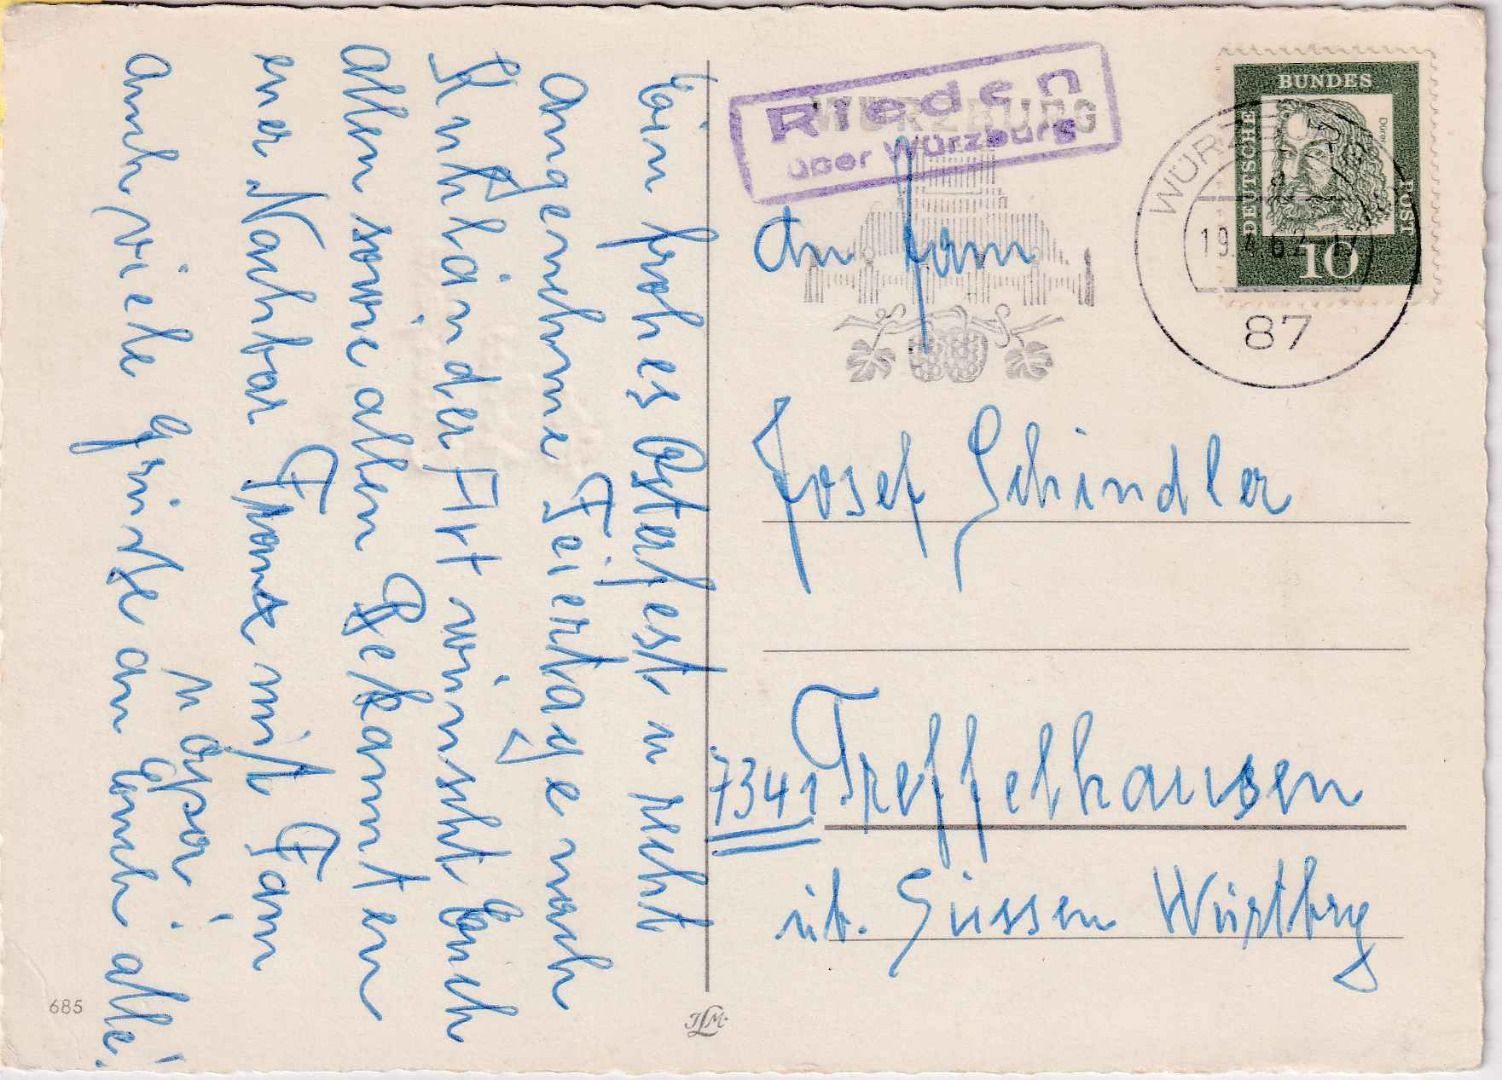 Ein frohes Osterfest u recht
angenehme Feiertage nach
Kuhländer Art wünscht Euch
allen sowie allen Bekannten
euer Nachbar Franz mit Fam
u Opa!
auch viele grüße an Euch alle!
685
JLM
Rieden
über Würzburg
WÜRZBURG
WÜRZBURG
19.4.62
87
BUNDES
DEUTSCHE
POST
Dürer
10
An Fam
Josef Schindler
7341 Treffelhausen
üb. Süssen Würtbrg